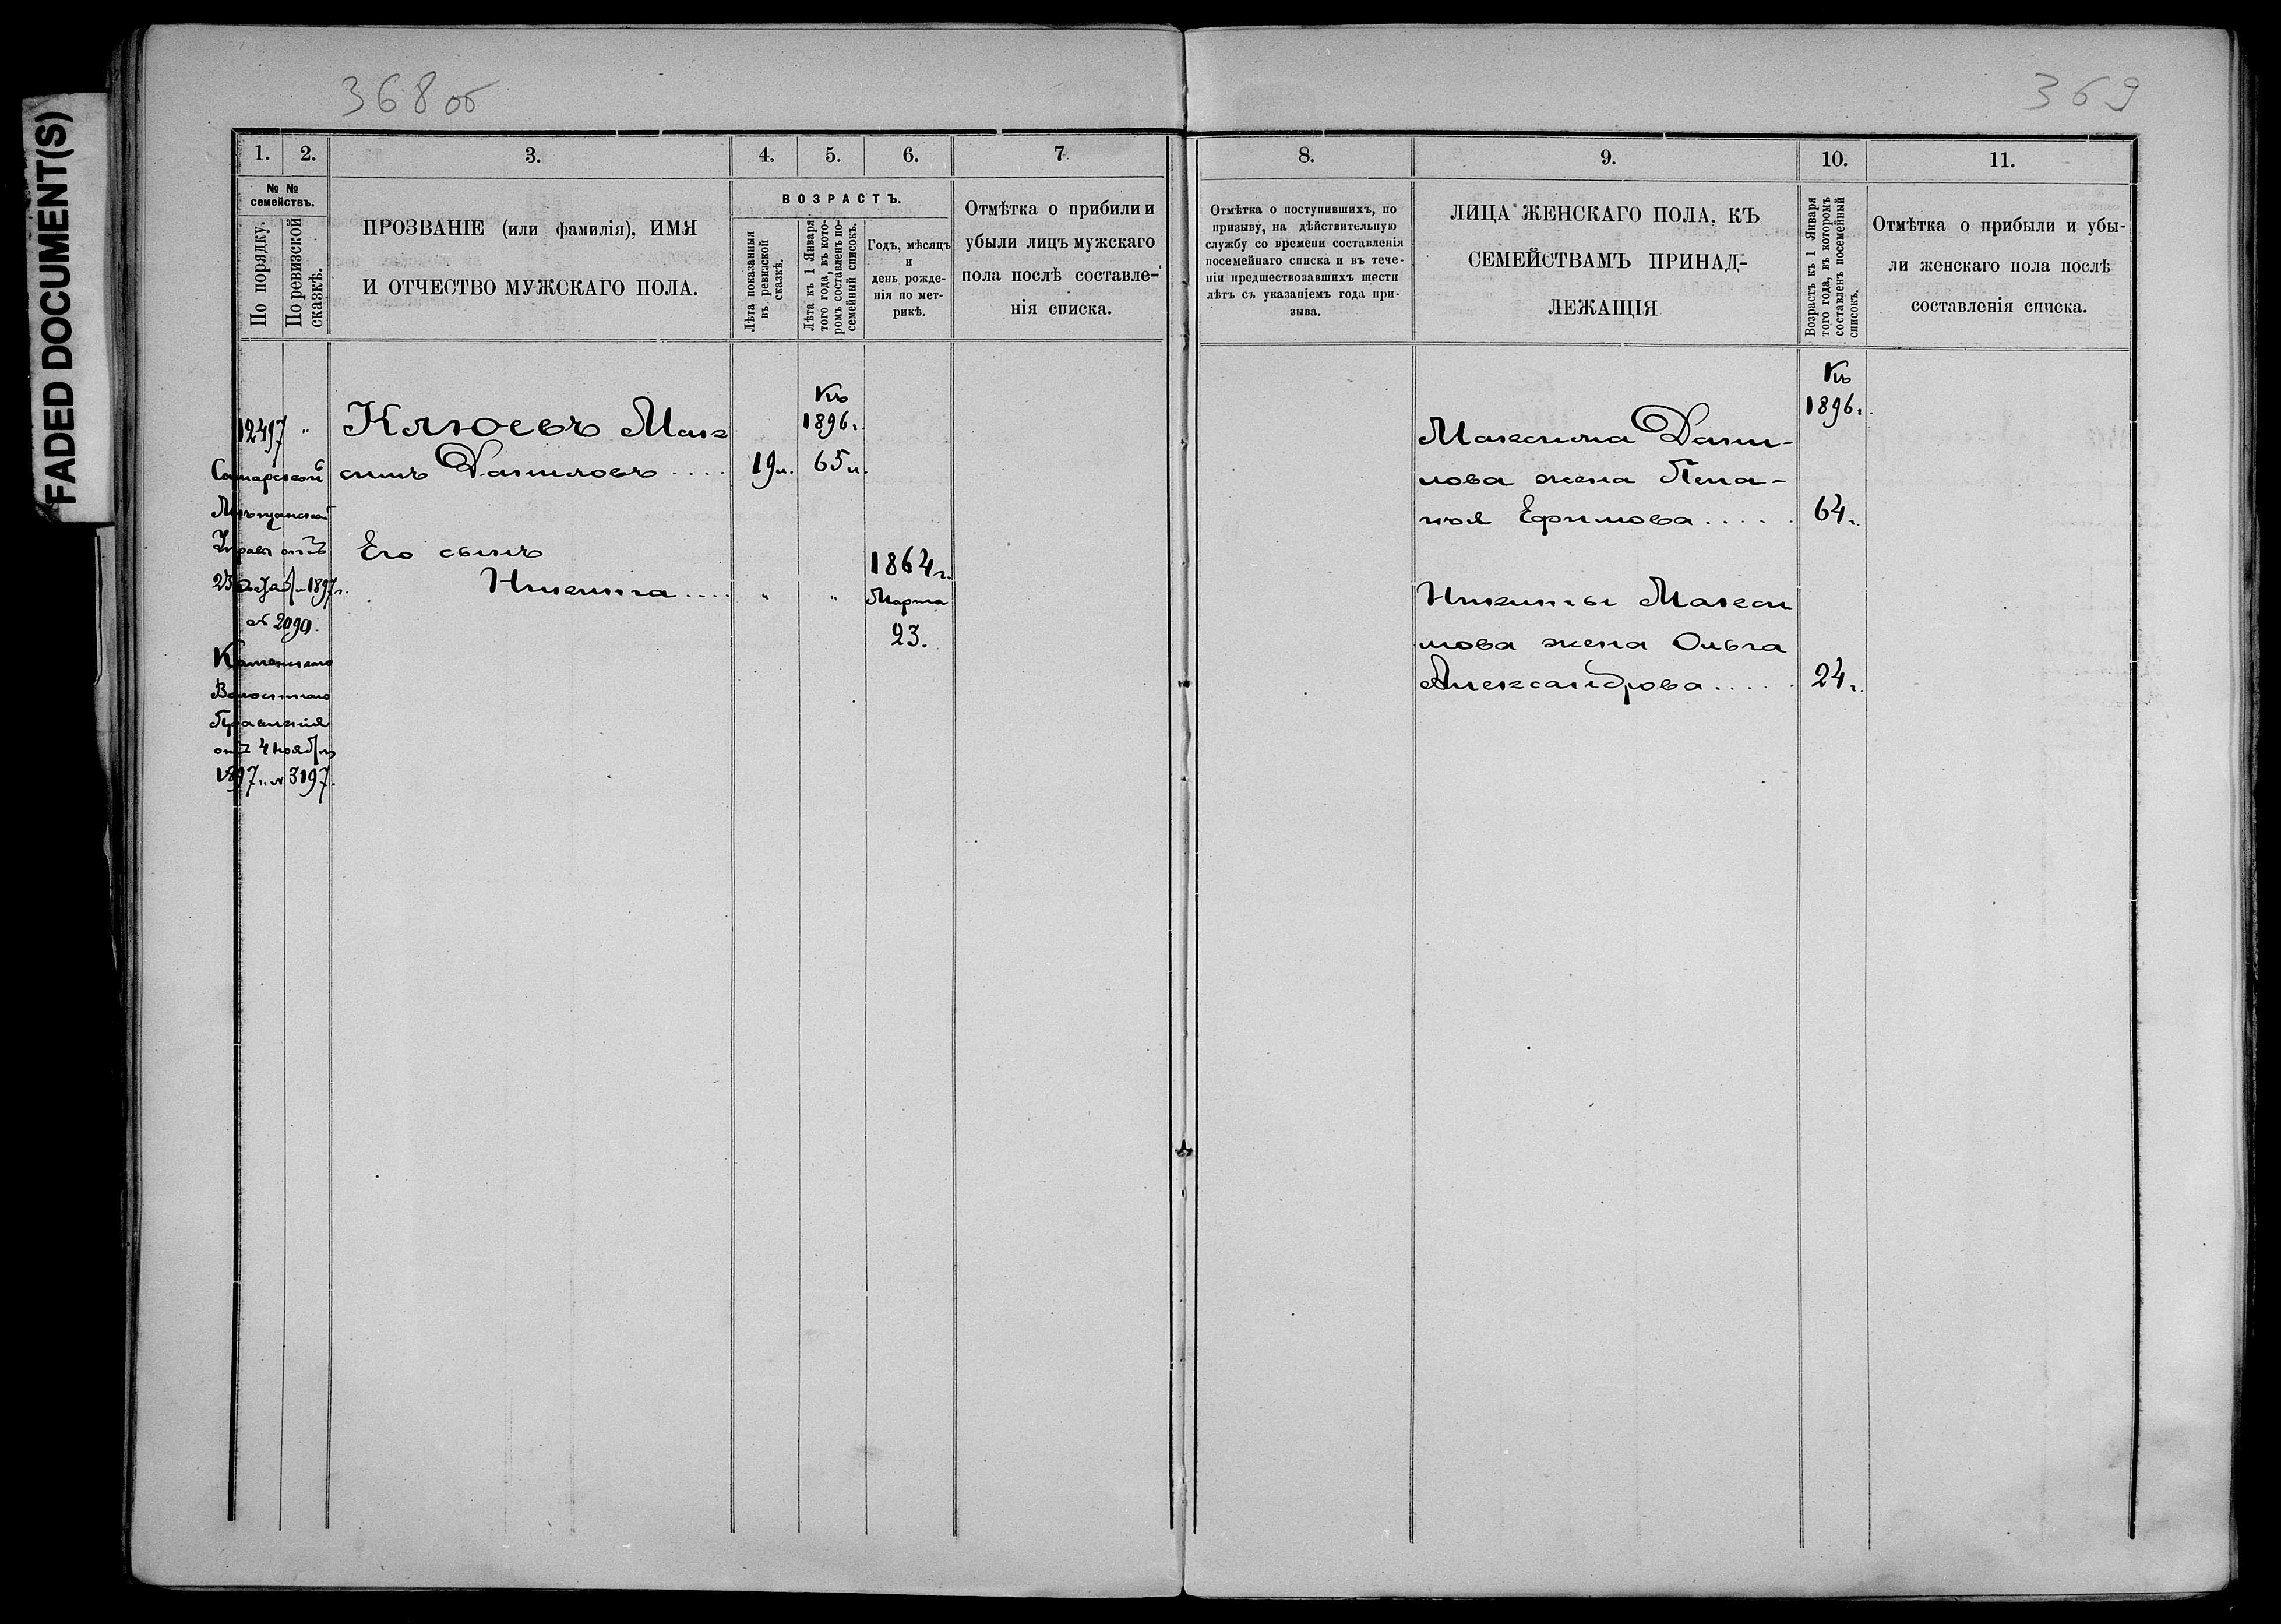 FADED DOCUMENT(S)
368 об
369
1.
2.
3.
4.
5.
6.
7
№ №
семействъ.
По порядку.
По ревизской
сказкѣ.
ПРОЗВАНІЕ (или фамилія), ИМЯ
И ОТЧЕСТВО МУЖСКАГО ПОЛА.
ВОЗРАСТЪ.
Лѣта показанныя
въ ревизской
сказкѣ.
Лѣта къ 1 Января
того года, въ кото-
ромъ составленъ по-
семейный списокъ.
Годъ, мѣсяцъ
и
день рожде-
нія по мет-
рикѣ.
Отмѣтка о прибыли и
убыли лицъ мужскаго
пола послѣ составле-
нія списка.
12497 "
Самарской
Мѣщанской
Управы отъ
1897 г.
№ 2090.
Каменскаго
Волостнаго
Правленія
отъ 4 ноября
1897 г. № 3197.
Клюевъ Мак
симъ Даниловъ ....
19 л.
Къ
1896 г.
65 л.
Его сынъ
Никита .... " "
1864 г.
Марта
23.
8.
9.
10.
11.
Отмѣтка о поступившихъ, по
призыву, на дѣйствительную
службу со времени составленія
посемейнаго списка и въ тече-
ніи предшествовавшихъ шести
лѣтъ съ указаніемъ года при-
зыва.
ЛИЦА ЖЕНСКАГО ПОЛА, КЪ
СЕМЕЙСТВАМЪ ПРИНАД-
ЛЕЖАЩІЯ
Возрастъ къ 1 Января
того года, въ которомъ
составленъ посемейный
списокъ.
Отмѣтка о прибыли и убы-
ли женскаго пола послѣ
составленія списка.
Къ
1896 г.
Максима Дани-
лова жена Пела-
гея Ефимова ..... 64 г.
Никиты Макси
мова жена Ольга
Александрова ..... 24 г.